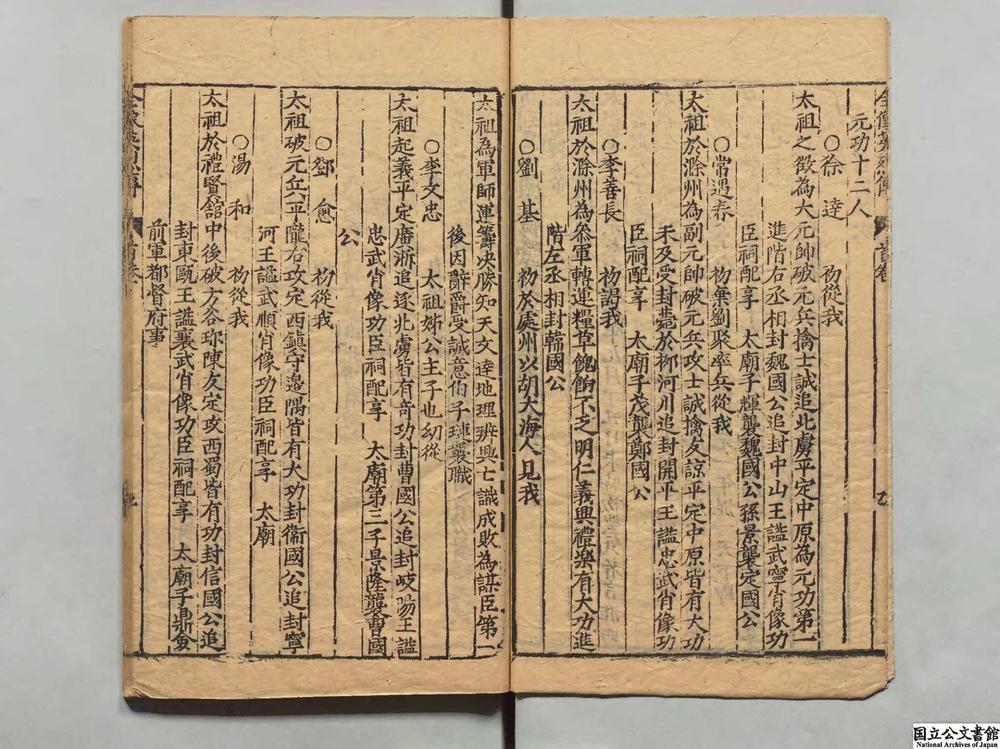 元功十二人
○徐　達　　初從我
太祖之徵為大元帥破元兵擒士誠追北虜平定中原為元功第一
進階右丞相封魏國公追封中山王謚武寧肖像功
臣祠配享　太廟子輝襲魏國公孫景襲定國公
○常遇春　　初棄劉聚率兵從我
太祖於滁州為副元帥破元兵攻士誠擒友諒平定中原皆有大功
未及受封薨於柳河川追封開平王謚忠武肖像功
臣祠配享　太廟子茂襲鄭國公
○李善長　　初謁我
太祖於滁州為叅軍轉運糧草餽餉不乏明仁義興禮樂有大功進
階左丞相封韓國公
○劉　基　　初於處州以胡大海人見我
太祖為軍師運籌决勝知天文達地理辨興亡識成敗為謀臣第一
後因辭爵受誠意伯子璉襲職
○李文忠　　太祖姊公主子也幼從
太祖起義平定唐浙追逐北虜皆有竒功封曹國公追封岐陽王謚
忠武肖像功臣祠配享　太廟第三子景隆襲曹國
公
○鄧　愈　　初從我
太祖破元兵六平隴右攻定西鎮守邊隅皆有大功封衞國公追封寧
河王謚武順肖像功臣祠配享　太廟
○湯　和　　初從我
太祖於禮賢舘中後破方谷珎陳友定攻西蜀皆有功封信國公追
封東甌王謚襄武肖像功臣祠配享　太廟子鼎僉
前軍都督府事
首卷
九
国立公文書館
National Archives of Japan